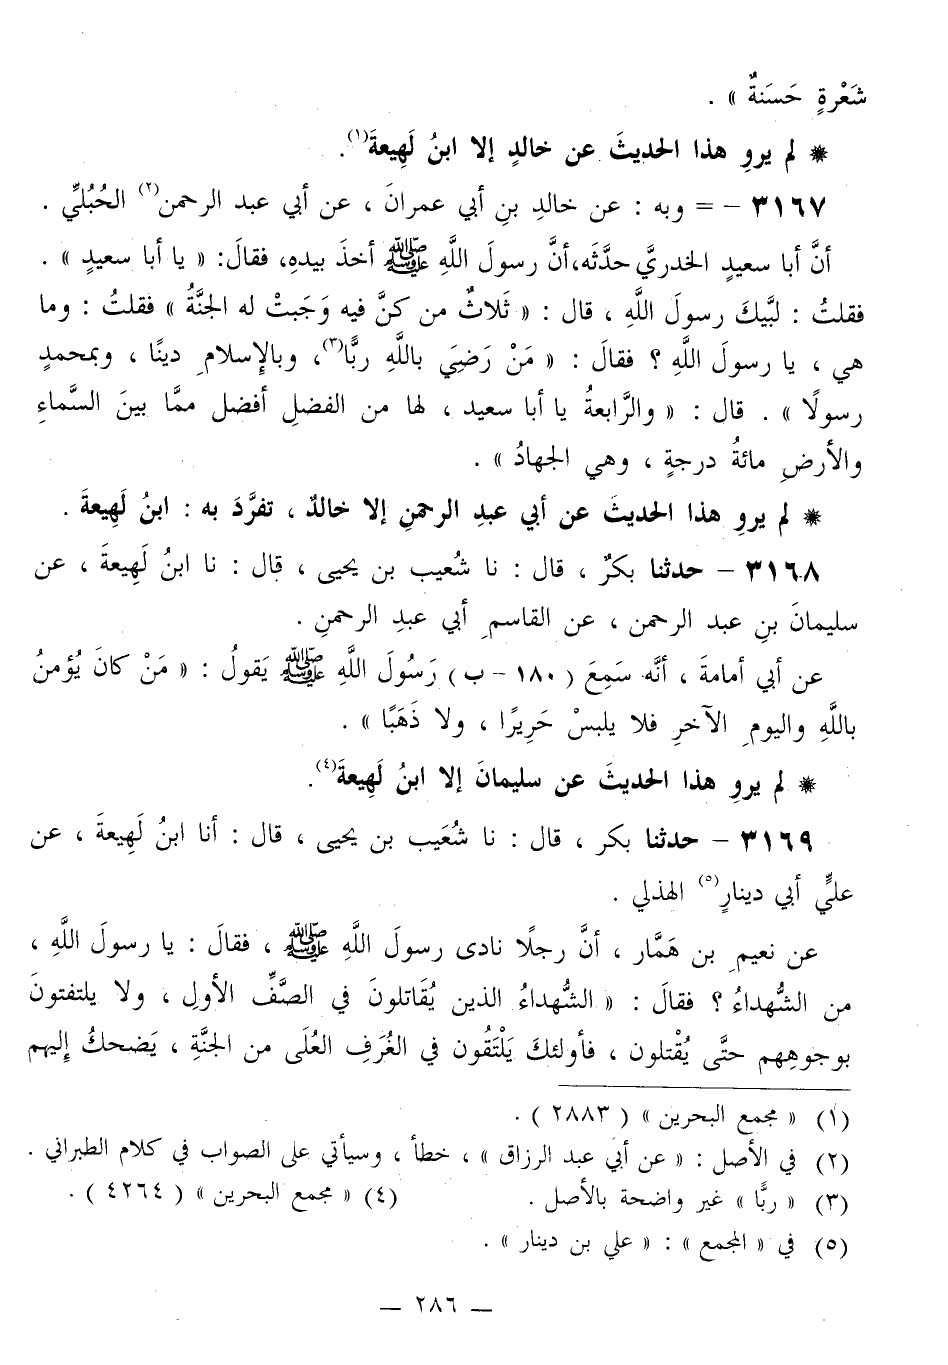 شَعْرةٍ حَسَنةٌ » .
* لم يروِ هذا الحديثَ عن خالدٍ إلا ابنُ لَهِيعةَ(١).
٣١٦٧ – = وبه : عن خالدِ بنِ أبي عمرانَ ، عن أبي عبد الرحمن(٢) الحُبُليِّ .
أنَّ أبا سعيدٍ الخدريَّ حدَّثَه،أنَّ رسولَ اللَّهِ ﷺ أخذَ بيدهِ، فقالَ: « يا أبا سعيدٍ » .
فقلتُ : لبَّيكَ رسولَ اللَّهِ ، قال : « ثَلاثٌ من كنَّ فيه وَجَبتْ له الجنَّةُ » فقلتُ : وما
هي ، يا رسولَ اللَّهِ ؟ فقالَ : « مَنْ رَضِيَ باللَّهِ ربًّا(٣)، وبالإسلامِ دينًا ، وبمحمدٍ
رسولًا » . قال : « والرَّابعةُ يا أبا سعيد ، لها من الفضلِ أفضل ممَّا بينَ السَّماءِ
والأرضِ مائةُ درجةٍ ، وهي الجهادُ » .
* لم يروِ هذا الحديثَ عن أبي عبدِ الرحمنِ إلا خالدٌ ، تفرَّدَ به : ابنُ لَهِيعةَ .
٣١٦٨ – حدثنا بكرٌ ، قال : نا شُعيب بن يحيى ، قال : نا ابنُ لَهِيعةَ ، عن
سليمانَ بنِ عبد الرحمن ، عن القاسمِ أبي عبدِ الرحمنِ .
عن أبي أمامةَ ، أنَّه سَمِعَ ( ١٨٠ – ب ) رَسُولَ اللَّهِ ﷺ يَقولُ : « مَنْ كانَ يُؤمنُ
باللَّهِ واليومِ الآخرِ فلا يلبسْ حَرِيرًا ، ولا ذَهَبًا » .
* لم يروِ هذا الحديثَ عن سليمانَ إلا ابنُ لَهِيعةَ(٤).
٣١٦٩ – حدثنا بكر ، قال : نا شُعَيب بن يحيى ، قال : أنا ابنُ لَهِيعةَ ، عن
عليٍّ أبي دينارٍ(٥) الهذلي .
عن نعيمِ بن هَمَّار ، أنَّ رجلًا نادى رسولَ اللَّهِ ﷺ ، فقالَ : يا رسولَ اللَّهِ ،
من الشُّهداءُ ؟ فقالَ : « الشُّهداءُ الذين يُقَاتلونَ في الصَّفِّ الأولِ ، ولا يلتفتونَ
بوجوهِهم حتَّى يُقْتلون ، فأولئكَ يَلْتَقُون في الغُرَفِ العُلَى من الجنَّةِ ، يَضحكُ إليهم
(١) « مجمع البحرين » ( ٢٨٨٣ ) .
(٢) في الأصل : « عن أبي عبد الرزاق » ، خطأ ، وسيأتي على الصواب في كلام الطبراني .
(٣) « ربًّا » غير واضحة بالأصل . (٤) « مجمع البحرين » ( ٤٢٦٤ ) .
(٥) في « المجمع » : « علي بن دينار » .
— ٢٨٦ —